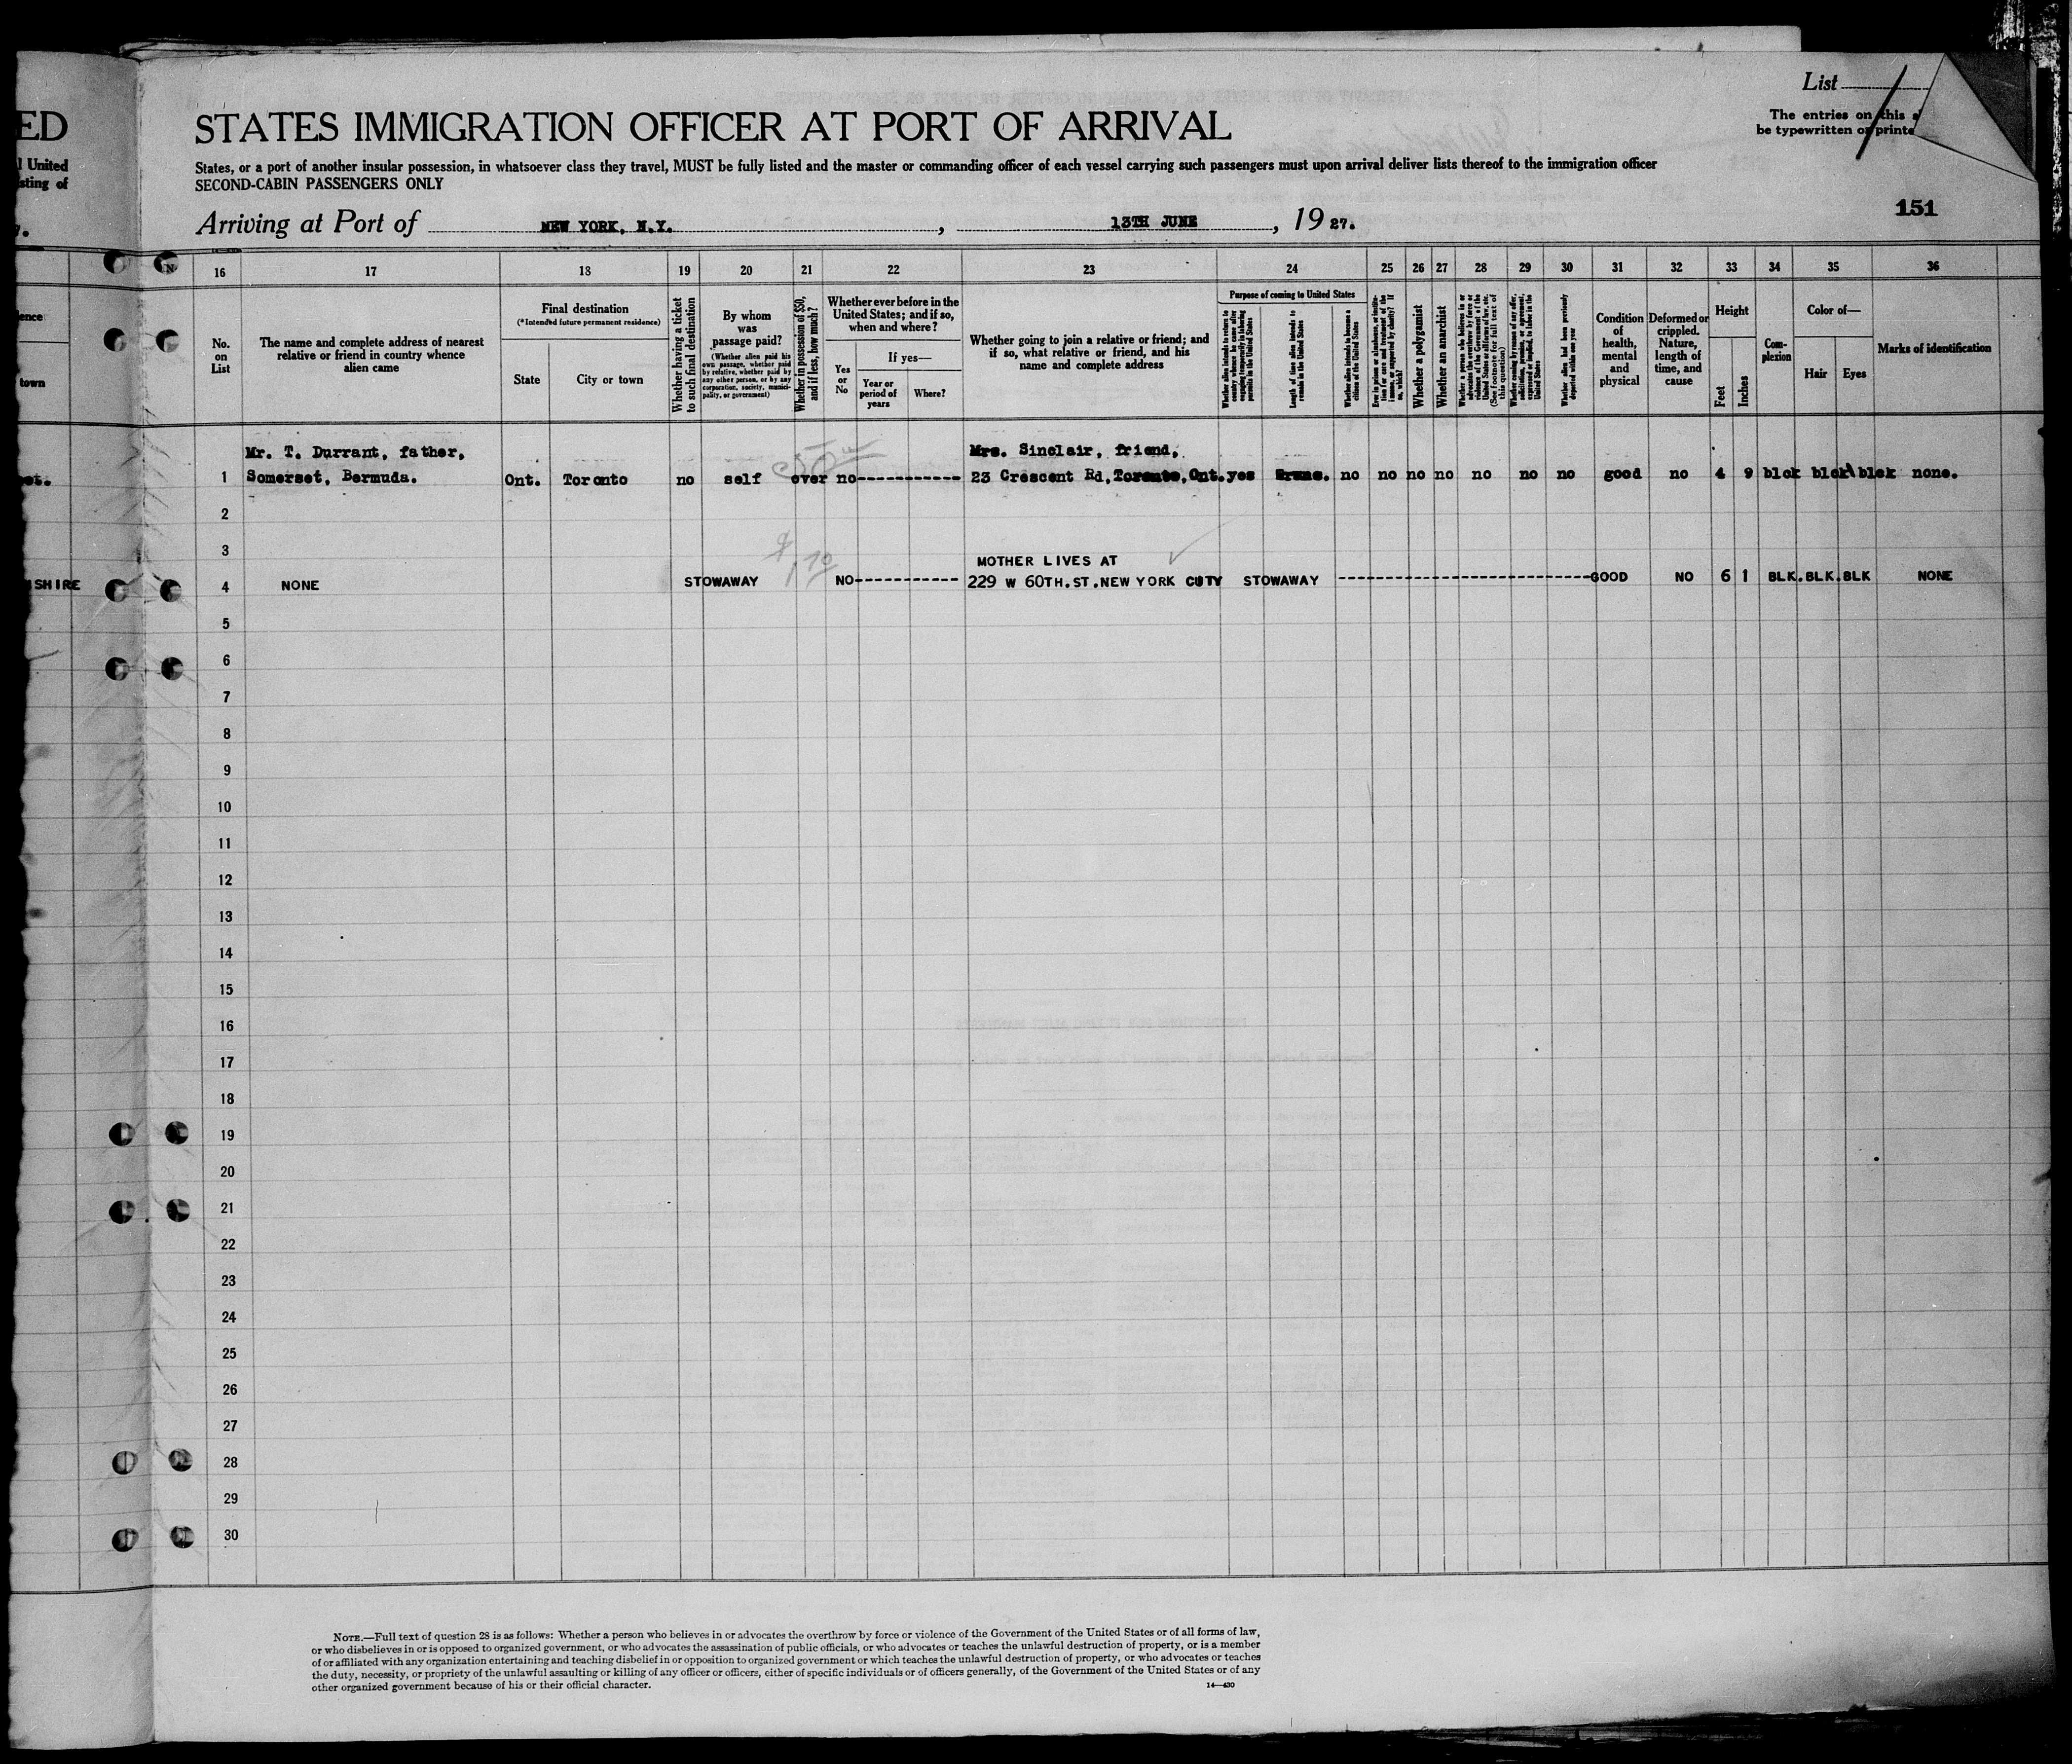 ED
l United
sting of
7.
ence
town
SHIRE
List
The entries on this s
be typewritten or printe
151
STATES IMMIGRATION OFFICER AT PORT OF ARRIVAL
States, or a port of another insular possession, in whatsoever class they travel, MUST be fully listed and the master or commanding officer of each vessel carrying such passengers must upon arrival deliver lists thereof to the immigration officer
SECOND-CABIN PASSENGERS ONLY
Arriving at Port of NEW YORK, N.Y., 13TH JUNE, 19 27.
16 17 18 19 20 21 22 23 24 25 26 27 28 29 30 31 32 33 34 35 36
No. on List
The name and complete address of nearest relative or friend in country whence alien came
Final destination
(*Intended future permanent residence)
State
City or town
Whether having a ticket to such final destination
By whom was passage paid?
(Whether alien paid his own passage, whether paid by relative, whether paid by any other person, or by any corporation, society, municipality, or government)
Whether in possession of $50, and if less, how much?
Whether ever before in the United States; and if so, when and where?
Yes or No
If yes—
Year or period of years
Where?
Whether going to join a relative or friend; and if so, what relative or friend, and his name and complete address
Purpose of coming to United States
Length of time alien intends to remain in the United States
Whether alien intends to become a citizen of the United States
Whether a polygamist
Whether an anarchist
Whether alien had been previously deported within one year
Condition of health, mental and physical
Deformed or crippled. Nature, length of time, and cause
Height
Feet
Inches
Complexion
Color of—
Hair
Eyes
Marks of identification
Mr. T. Durrant, father,
Mrs. Sinclair, friend,
1 Somerset, Bermuda. Ont. Toronto no self over no------------ 23 Crescent Rd, Toronto, Ont. yes no no no no no no no good no 4 9 blck blck blck none.
2
3
MOTHER LIVES AT
4 NONE STOWAWAY NO------------ 229 W 60TH.ST.NEW YORK CUTY STOWAWAY ------------------------------GOOD NO 6 1 BLK. BLK. BLK NONE
5
6
7
8
9
10
11
12
13
14
15
16
17
18
19
20
21
22
23
24
25
26
27
28
29
30
NOTE.—Full text of question 28 is as follows: Whether a person who believes in or advocates the overthrow by force or violence of the Government of the United States or of all forms of law,
or who disbelieves in or is opposed to organized government, or who advocates the assassination of public officials, or who advocates or teaches the unlawful destruction of property, or is a member
of or affiliated with any organization entertaining and teaching disbelief in or opposition to organized government or which teaches the unlawful destruction of property, or who advocates or teaches
the duty, necessity, or propriety of the unlawful assaulting or killing of any officer or officers, either of specific individuals or of officers generally, of the Government of the United States or of any
other organized government because of his or their official character.
14—430